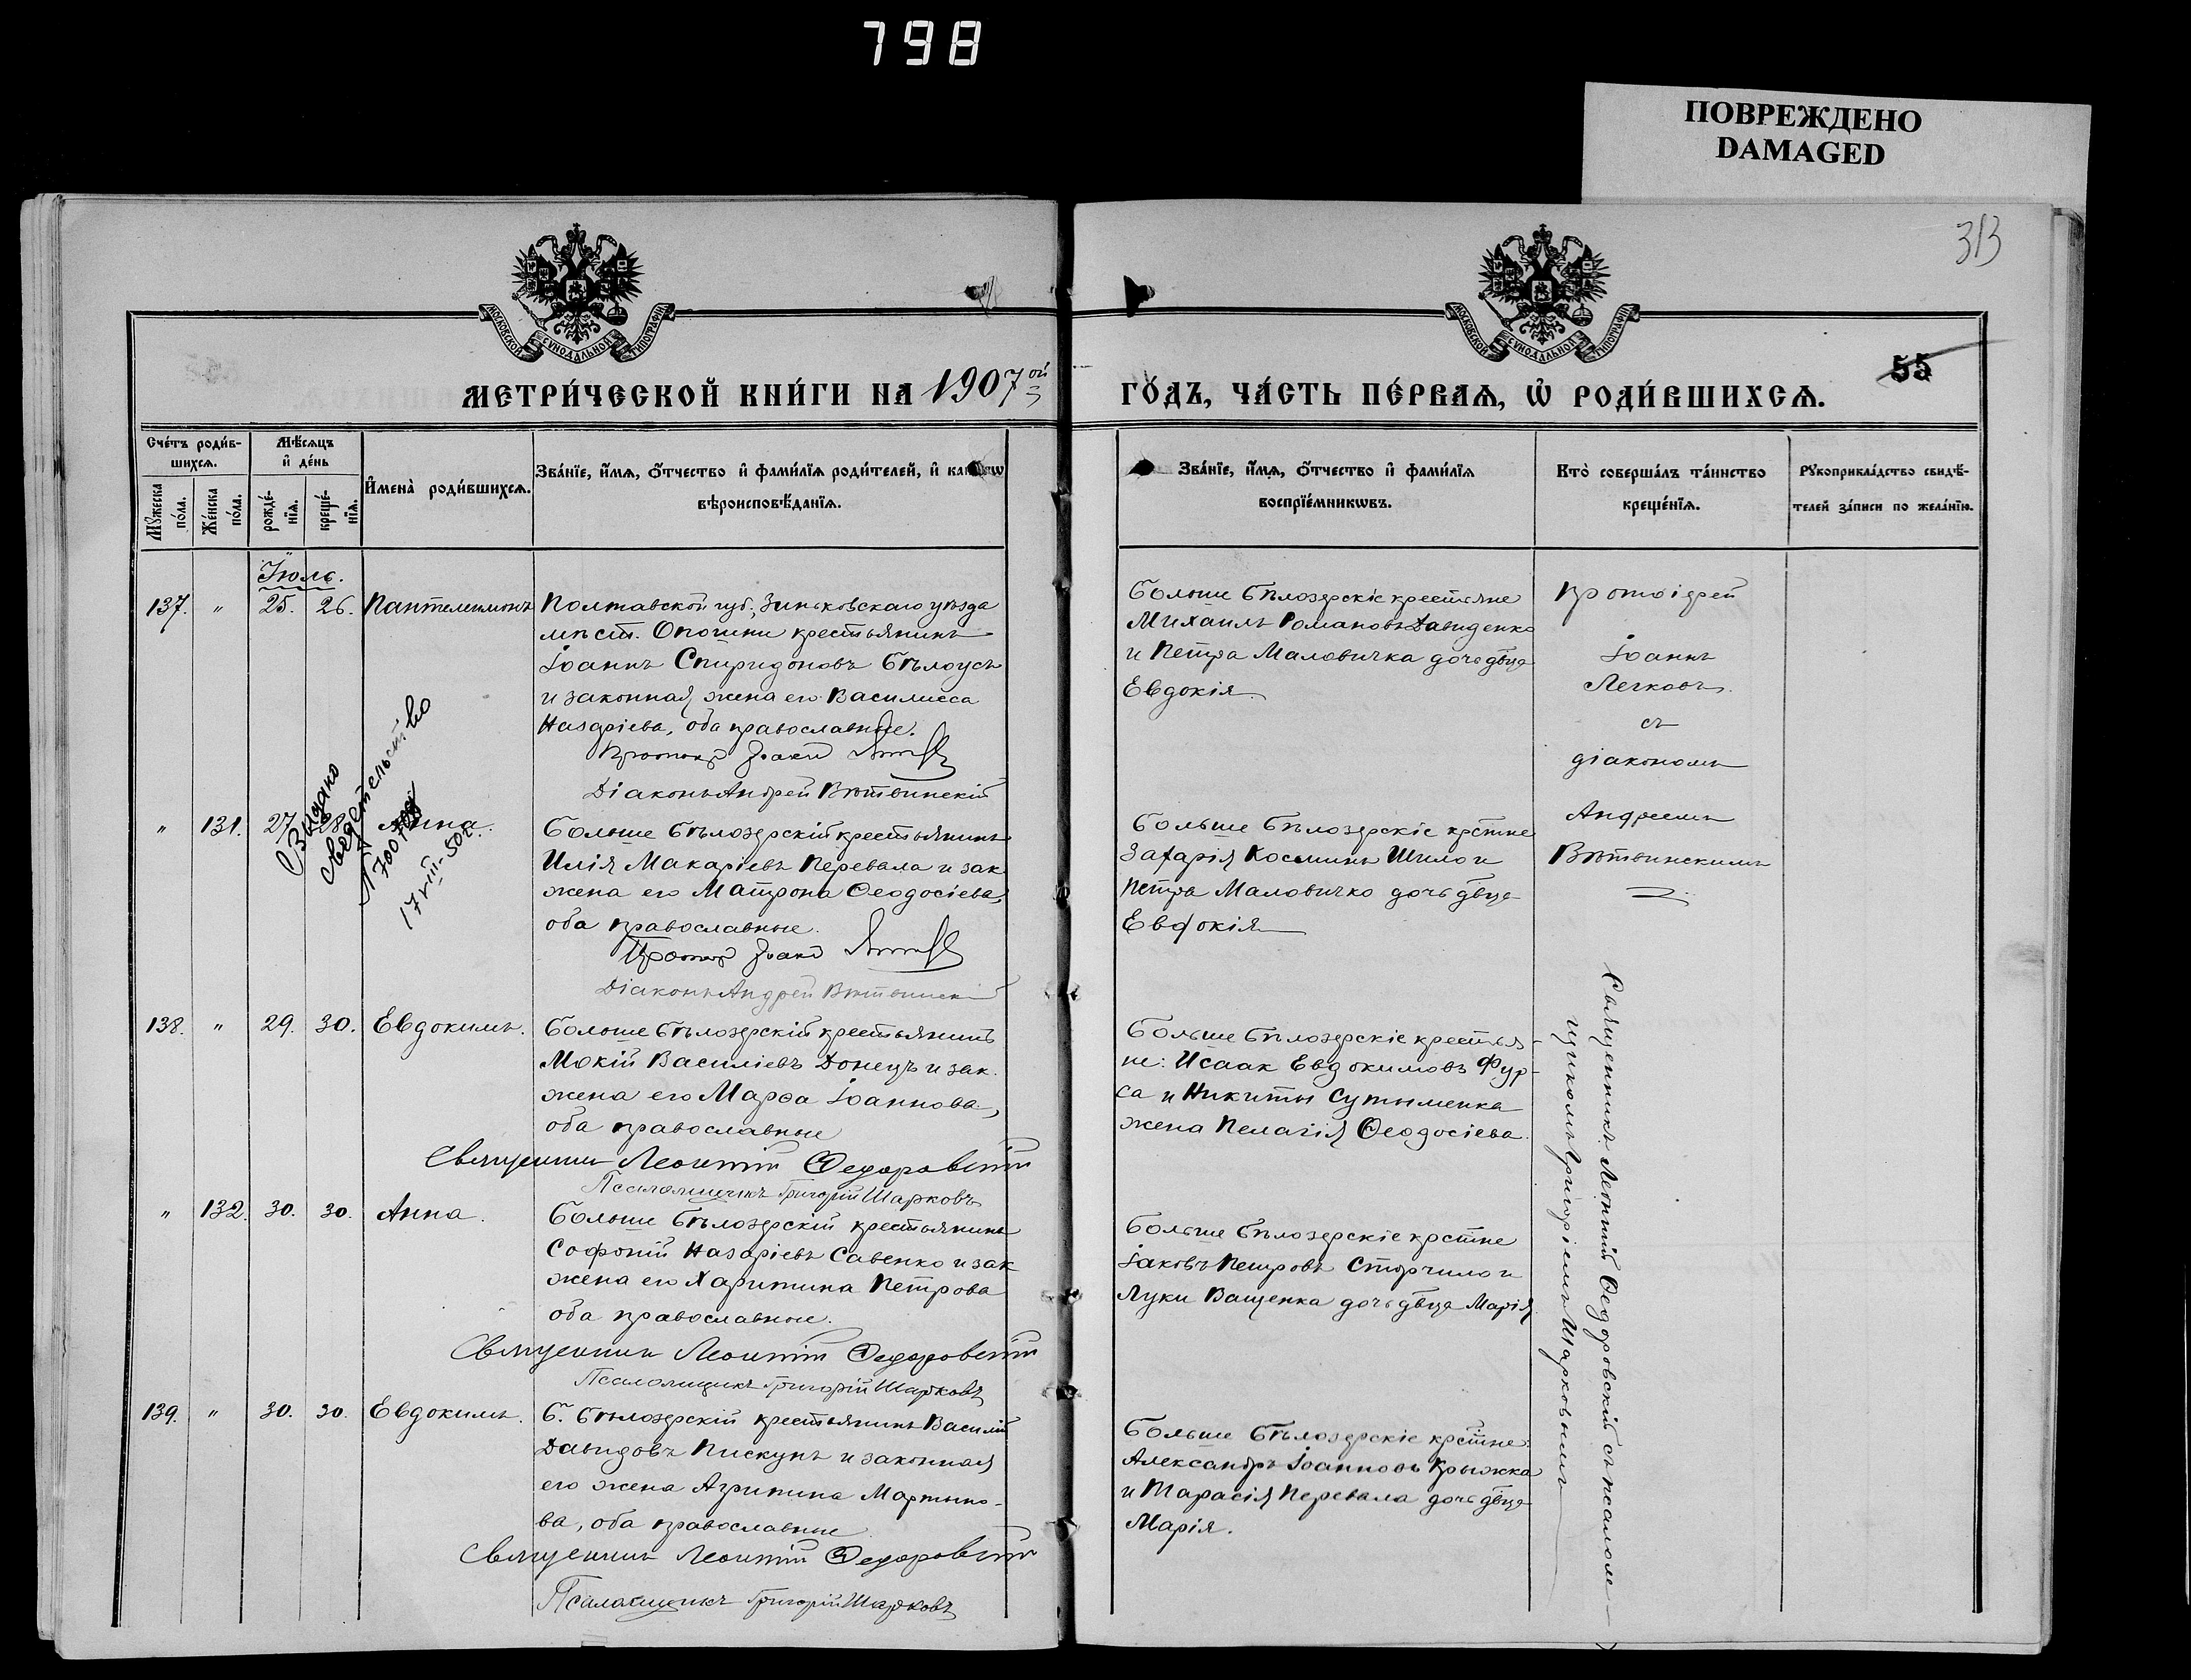 798
ПОВРЕЖДЕНО
DAMAGED
313
МОСКОВСКОЙ СѴНОДАЛЬНОЙ ТИПОГРАФІИ
МОСКОВСКОЙ СѴНОДАЛЬНОЙ ТИПОГРАФІИ
55
МЕТРИ́ЧЕСКОЙ КНИ́ГИ НА 1907ой
ГО́ДЪ, ЧА́СТЬ ПЕ́РВАѦ, Ѡ҆ РОДИ́ВШИХСѦ.
Сче́тъ роди́в-
шихсѧ.
Мѣ́сѧцъ
и҆ де́нь
Мꙋ́жеска
по́ла.
Же́нска
по́ла.
рожде́-
нїѧ.
креще́-
нїѧ.
И҆мена̀ роди́вшихсѧ.
Зва́нїе, и҆́мѧ, ѻ҆́тчество и҆ фами́лїѧ роди́телей, и҆
вѣроисповѣ́данїѧ.
Зва́нїе, и҆́мѧ, ѻ҆́тчество и҆ фами́лїѧ
воспрїе́мникѡвъ.
Кто̀ соверша́лъ та́инство
креще́нїѧ.
Рꙋкоприкла́дство свидѣ́-
телей за́писи по жела́нїю.
Іюль.
137. " 25. 26. Пантелеимонъ
Полтавской губ., Зиньковскаго уѣзда
мѣст. Опошни крестьянинъ
Іоаннъ Спиридоновъ Бѣлоусъ
и законная жена его Василисса
Назаріева, оба православные.
Діаконъ Андрей Вѣтвинскій
Больше Бѣлозерскіе крестьяне
Михаилъ Романовъ Давиденко
и Петра Маловичка дочь дѣвица
Евдокія
Протоіерей
Іоаннъ
Легковъ
съ
діакономъ
Андреемъ
Вѣтвинскимъ
Выдано
свидетельство
17 VIII-50г.
" 131. 27. 28. Анна.
Больше Бѣлозерскій крестьянинъ
Илія Макаріевъ Перевала и зак.
жена его Матрона Ѳеодосіева,
оба православные.
Діаконъ Андрей Вѣтвинскій
Больше Бѣлозерскіе крстне
Захарія Косминъ Шило и
Петра Маловичко дочь двца
Евдокія
138. " 29. 30. Евдокимъ.
Больше Бѣлозерскій крестьянинъ
Мокій Василіевъ Донецъ и зак.
жена его Марѳа Іоаннова,
оба православные
Священникъ Леонтій Ѳедоровскій
Псаломщикъ Григорій Шарковъ
Больше Бѣлозерскіе крестья-
не: Исаак Евдокимовъ Фур-
са и Никиты Сутыменка
жена Пелагія Ѳеодосіева.
Священникъ Леонтій Ѳедоровскій съ псаломщ-
щикомъ Григоріемъ Шарковымъ
" 132. 30. 30. Анна.
Больше Бѣлозерскій крестьянинъ
Софоній Назаріевъ Савенко и зак.
жена его Харитина Петрова
оба православные.
Священникъ Леонтій Ѳедоровскій
Псаломщикъ Григорій Шарковъ
Больше Бѣлозерскіе крстне
Іаковъ Петровъ Сторчило и
Луки Ващенка дочь двца Марія.
139. " 30. 30. Евдокимъ.
Б. Бѣлозерскій крестьянинъ Василій
Давидовъ Пискунъ и законная
его жена Агрипина Мартыно-
ва, оба православные
Священникъ Леонтій Ѳедоровскій
Псаломщикъ Григорій Шарковъ
Больше Бѣлозерскіе крстне:
Александръ Іоанновъ Крыжка
и Тарасія Перевала дочь двца
Марія.